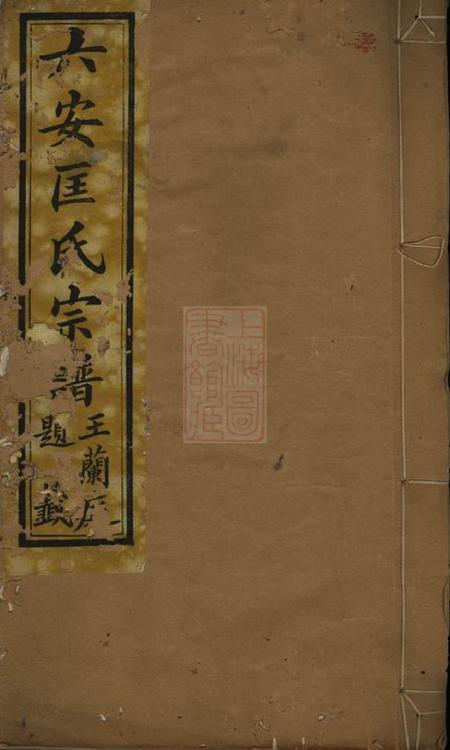 六安匡氏宗譜
王蘭
題籤
上海圖
書館藏